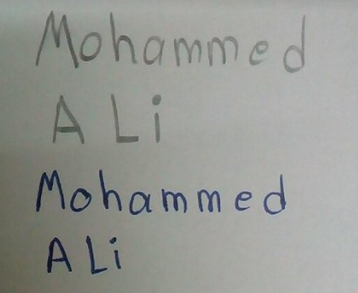 Mohammed
ALi
Mohammed
ALi